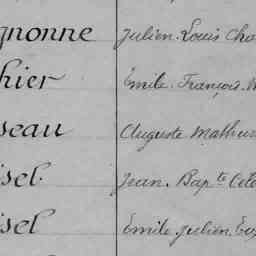 gnonne Julien. Louis Cha
hier Emile. François.
seau Auguste Mathur
isel. Jean. Bapte
isel Emile. Julien.